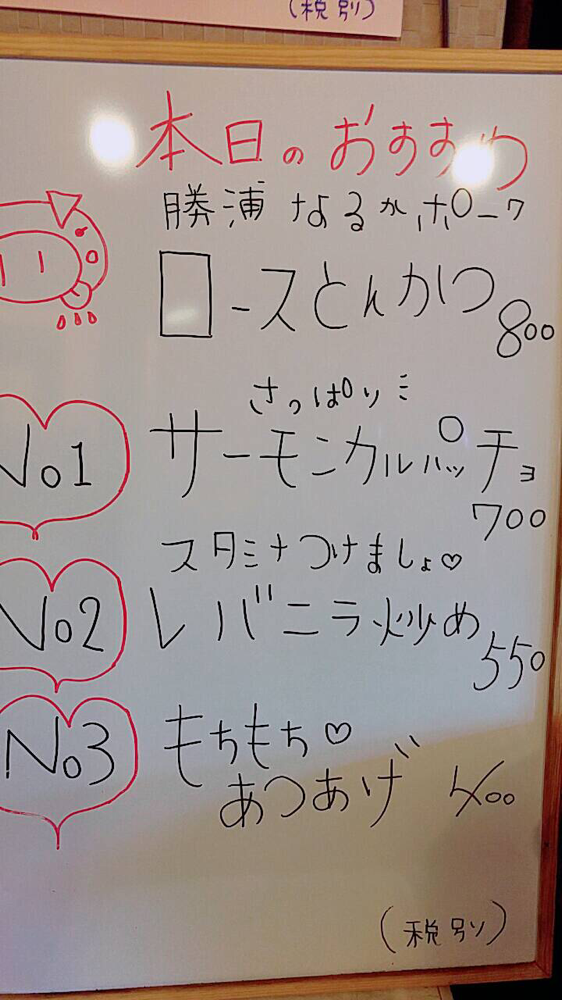 (税別)
本日のおすすめ
勝浦 なるかポーク
ロースとんかつ 800
さっぱりミ
No1 サーモンカルパッチョ
700
スタミナつけましょ♡
No2 レバニラ炒め
550
No3 もちもち♡
あつあげ 400
(税別)